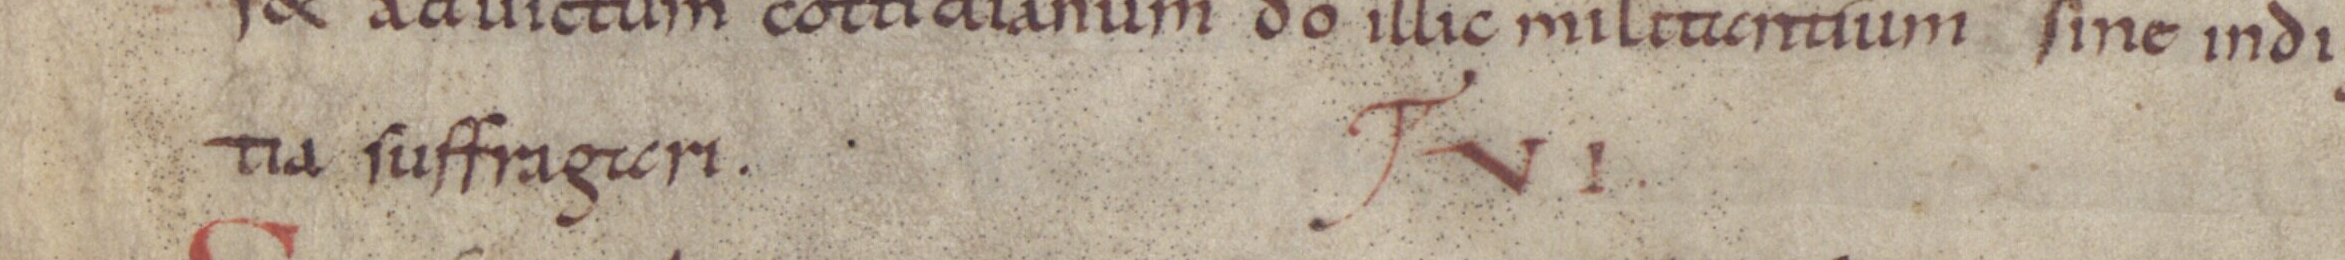 ad uictum cottidianum do illic militantium sine indi
tia suffragari.
VI.